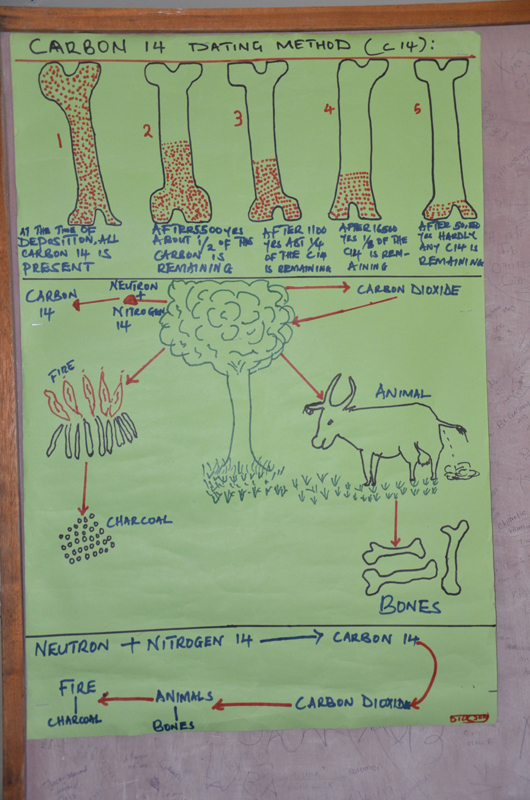 CARBON 14 DATING METHOD (C14):
1
2
3
4
5
AT THE TIME OF
DEPOSITION, ALL
CARBON 14 IS
PRESENT
AFTER 5500 YRS
ABOUT 1/2 OF THE
CARBON IS
REMAINING
AFTER 1100
YRS ABT 1/4
OF THE C14
IS REMAINING
AFTER 16500
YRS 1/8 OF THE
C14 IS REM-
AINING
AFTER
YRS HARDLY
ANY C14 IS
REMAINING
CARBON
14
NEUTRON
+
NITROGEN
14
CARBON DIOXIDE
FIRE
ANIMAL
CHARCOAL
BONES
NEUTRON + NITROGEN 14 CARBON 14
FIRE ANIMALS CARBON DIOXIDE
CHARCOAL BONES